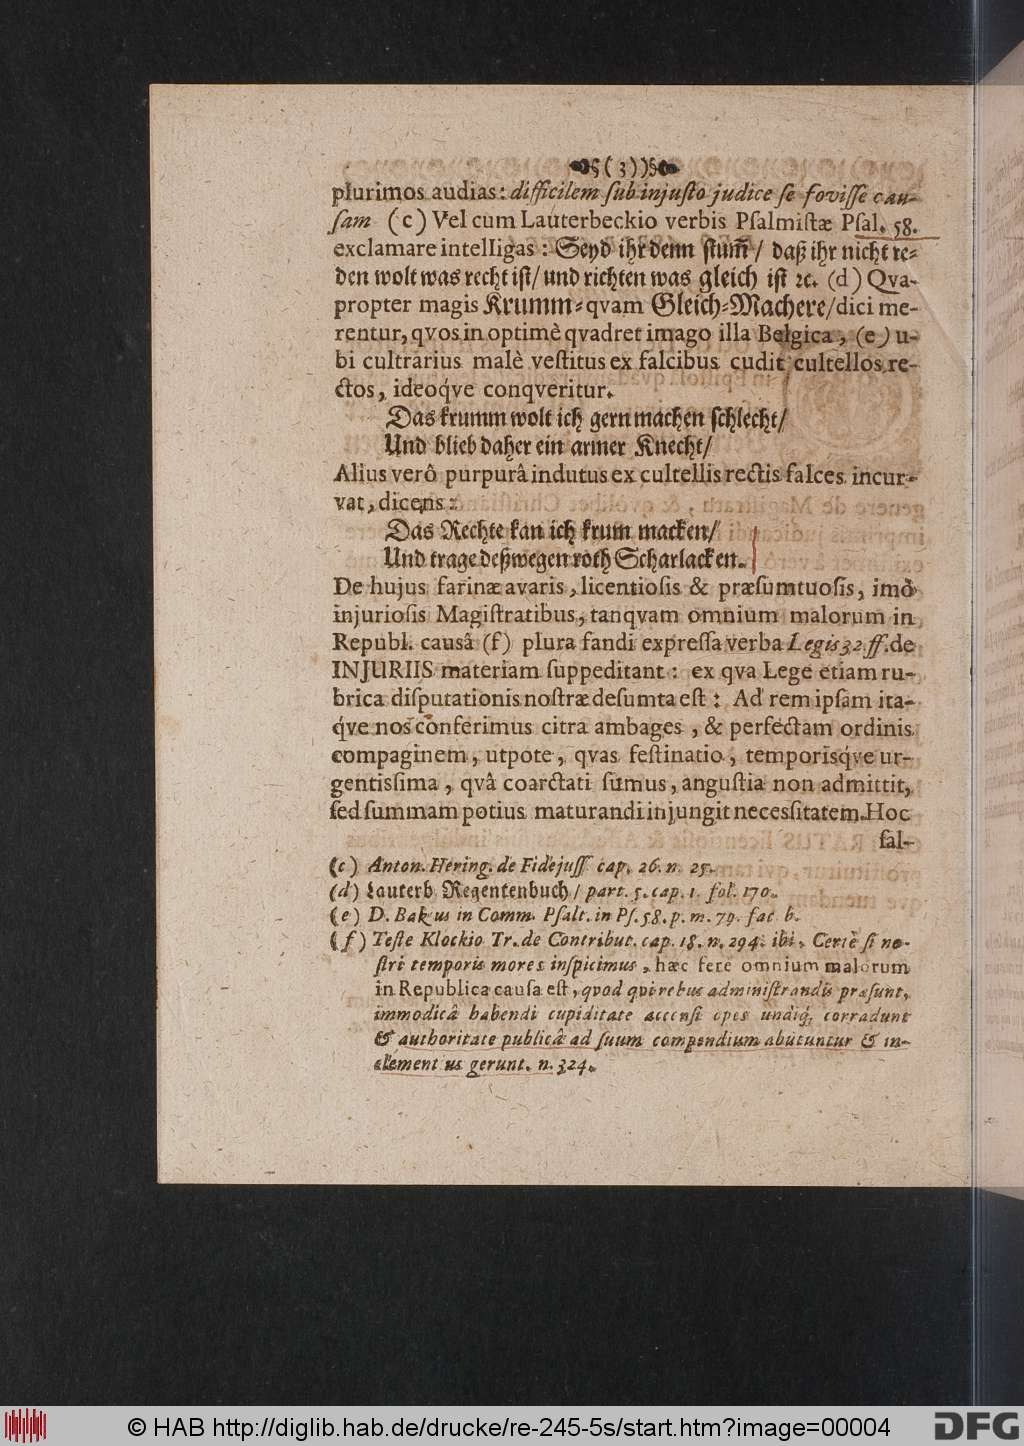 (3)
plurimos audias: difficilem ſub injuſto judice ſe foviſſe cau-
ſam (c) Vel cum Lauterbeckio verbis Pſalmiſtæ Pſal. 58.
exclamare intelligas: Seyd ihr denn ſtum̃/ daß ihr nicht re-
den wolt was recht iſt/ und richten was gleich iſt ꝛc. (d) Qva-
propter magis Krumm-qvam Gleich-Machere/dici me-
rentur, qvos in optimè qvadret imago illa Belgica, (e) u-
bi cultrarius malè veſtitus ex falcibus cudit cultellos re-
ctos, ideoq́ve conqveritur.
Das krumm wolt ich gern machen ſchlecht/
Und blieb daher ein armer Knecht/
Alius verô purpurâ indutus ex cultellis rectis falces incur-
vat, dicens:
Das Rechte kan ich krum macken/
Und trage deßwegen roth Scharlacken.
De hujus farinæ avaris, licentioſis & præſumtuoſis, imò
injurioſis Magiſtratibus, tanqvam omnium malorum in
Republ. causâ (f) plura fandi expreſſa verba Legis 32. ff. de
INJURIIS materiam ſuppeditant: ex qva Lege etiam ru-
brica diſputationis noſtræ deſumta eſt: Ad rem ipſam ita-
q́ve nos conferimus citra ambages, & perfectam ordinis
compaginem, utpote, qvas feſtinatio, temporisq́ve ur-
gentissima, qvâ coarctati ſumus, anguſtia non admittit,
ſed ſummam potius maturandi injungit necesſitatem. Hoc
ſal-
(c) Anton. Hering. de Fidejuſſ. cap. 26. n. 25.
(d) Lauterb. Regentenbuch / part. 5. cap. 1. fol. 170.
(e) D. Bakius in Comm. Pſalt. in Pſ. 58. p. m. 79. fac. b.
(f) Teſte Klockio Tr. de Contribut. cap. 18. n. 294. ibi, Certè ſi no-
ſtri temporis mores inſpicimus, hæc ferè omnium malorum
in Republica cauſa eſt, quod qvi rebus adminiſtrandis præſunt,
immodicâ habendi cupiditate accenſi opes undiq́; corradunt
& authoritate publicâ ad ſuum compendium abutuntur & in-
clementius gerunt. n. 324.
© HAB http://diglib.hab.de/drucke/re-245-5s/start.htm?image=00004
DFG